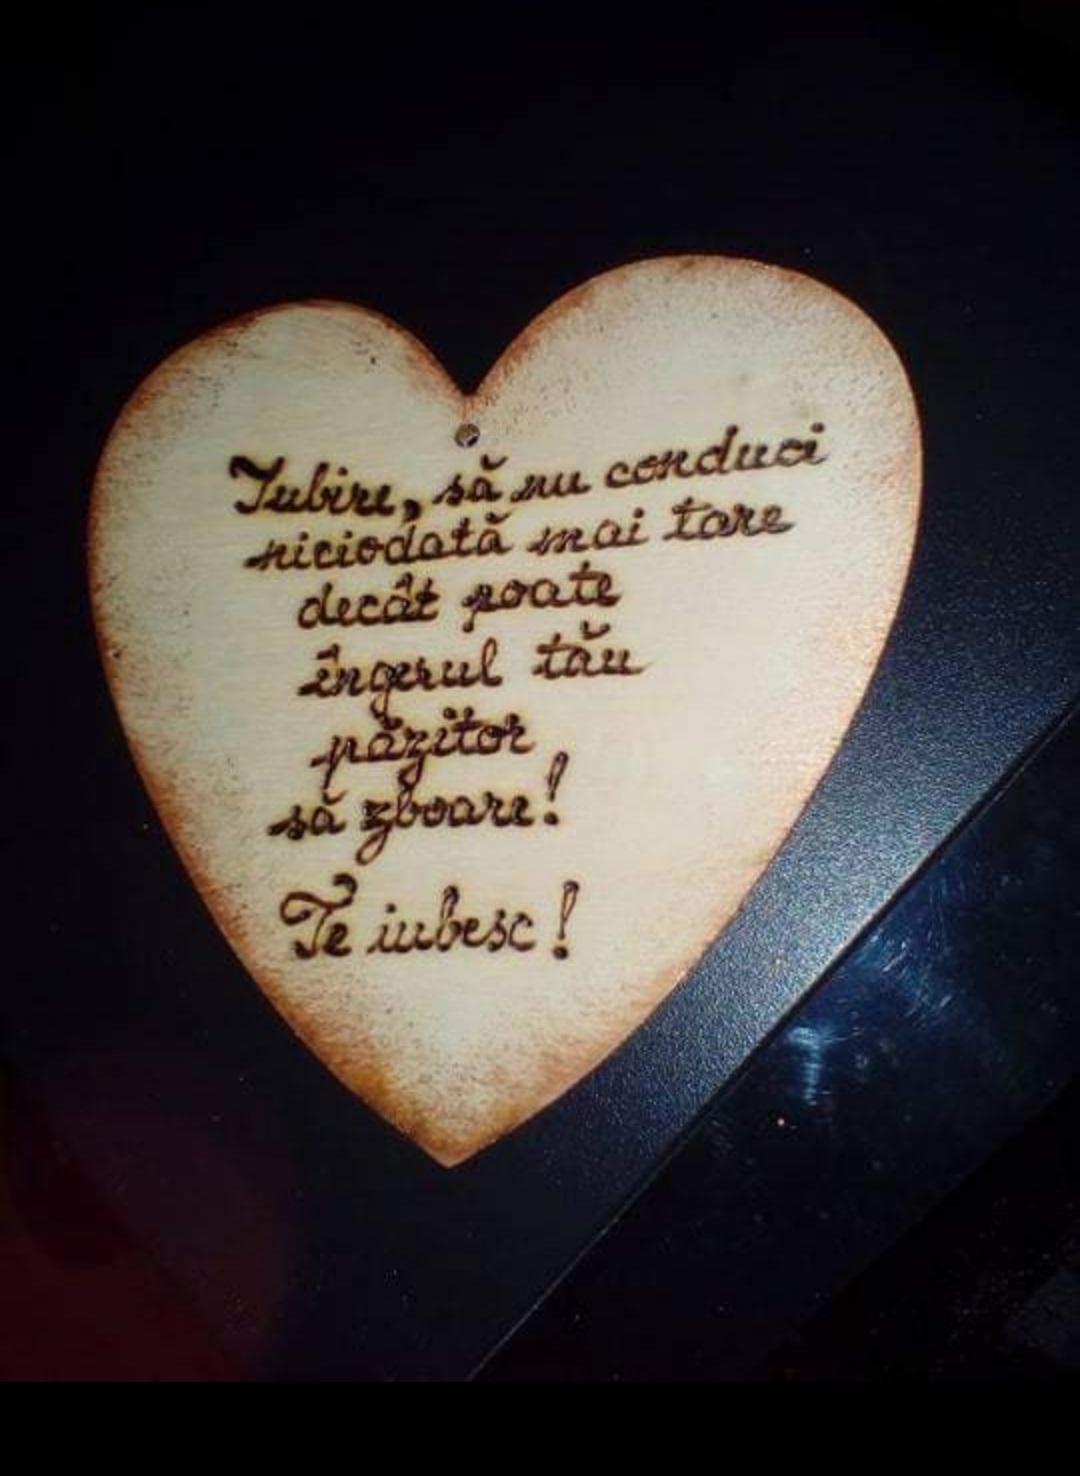 Iubire, să nu conduci
niciodată mai tare
decât poate
îngerul tău
păzitor
să zboare!
Te iubesc!